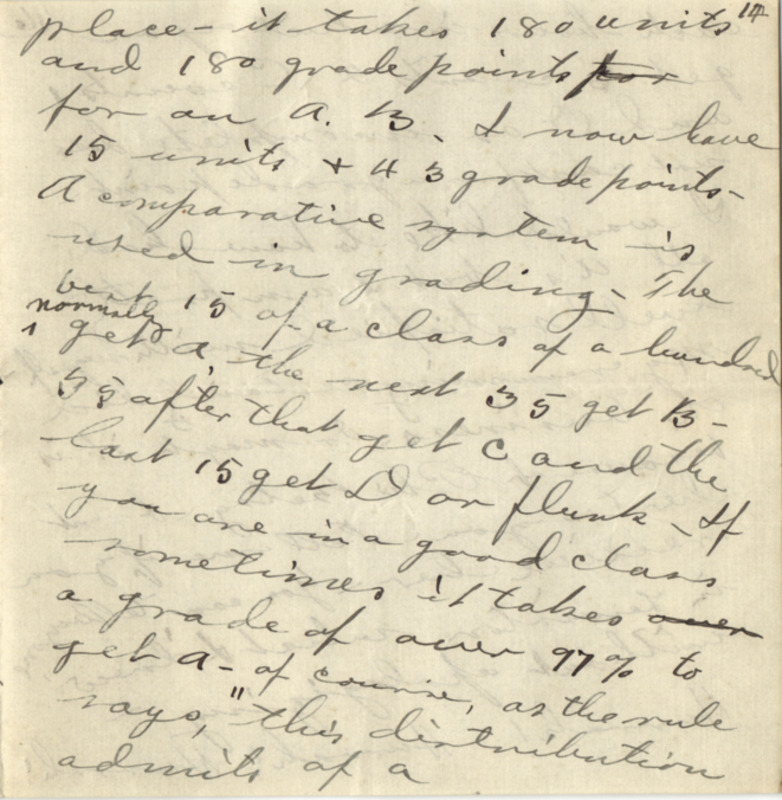 14
place - it takes 180 units
and 180 grade points for
for an A. B. I now have
15 units + 43 grade points -
A comparative system is
used in grading - The
best 15 of a class of a hundred
normally
get A, the next 35 get B -
35 after that get C and the
last 15 get D or flunk - If
you are in a good class
sometimes it takes over
a grade of over 97% to
get A - of course, as the rule
says, "this distribution
admits of a